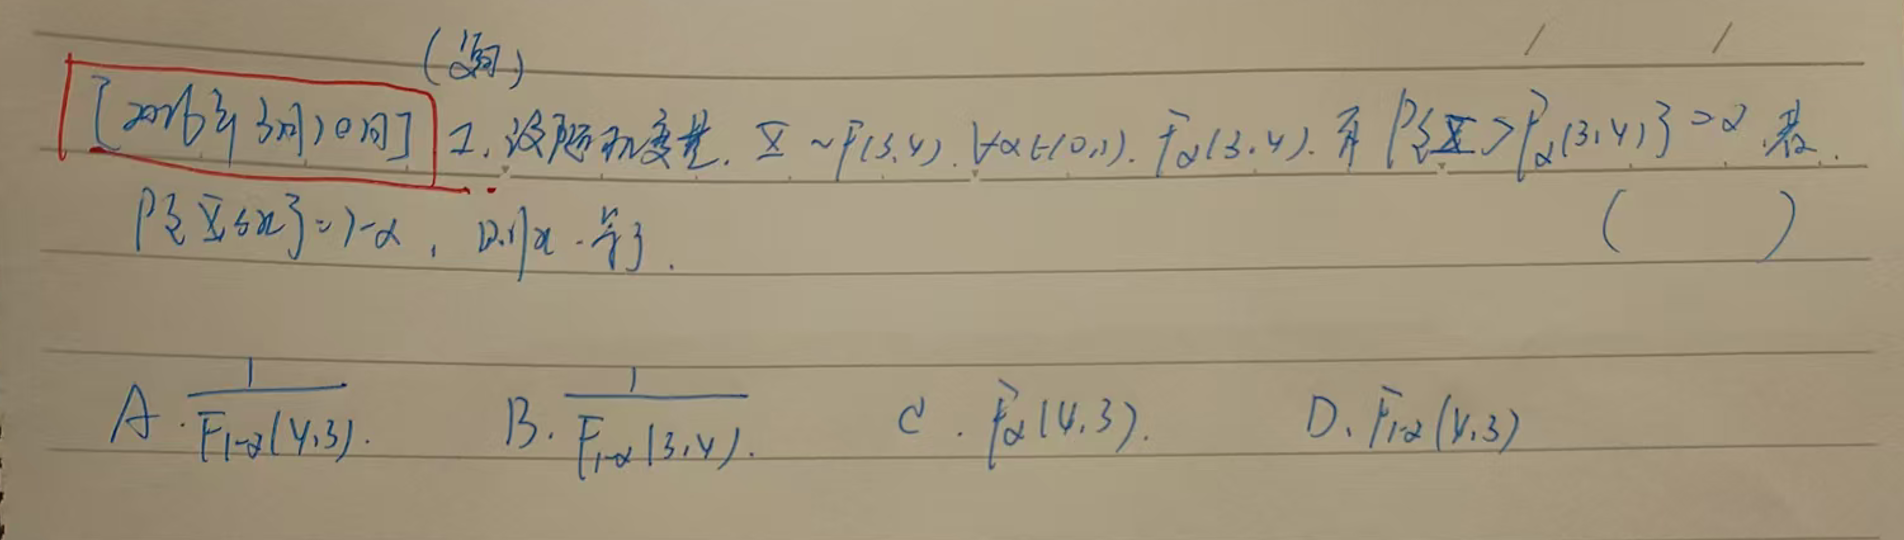 [2026年3月10日] 1. 设随机变量. X ~ F(3,4). ∀α∈(0,1). Fα(3,4). 有 P{X > Fα(3,4)} = α. 若.
P{X ≤ x} = 1-α, 则x . 等于. ( )
A. 1/F1-α(4,3). B. 1/F1-α(3,4). C. Fα(4,3). D. F1-α(4,3)